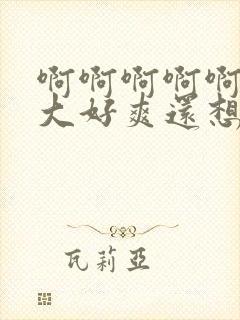 啊啊啊啊啊
大好爽還想
瓦莉亞